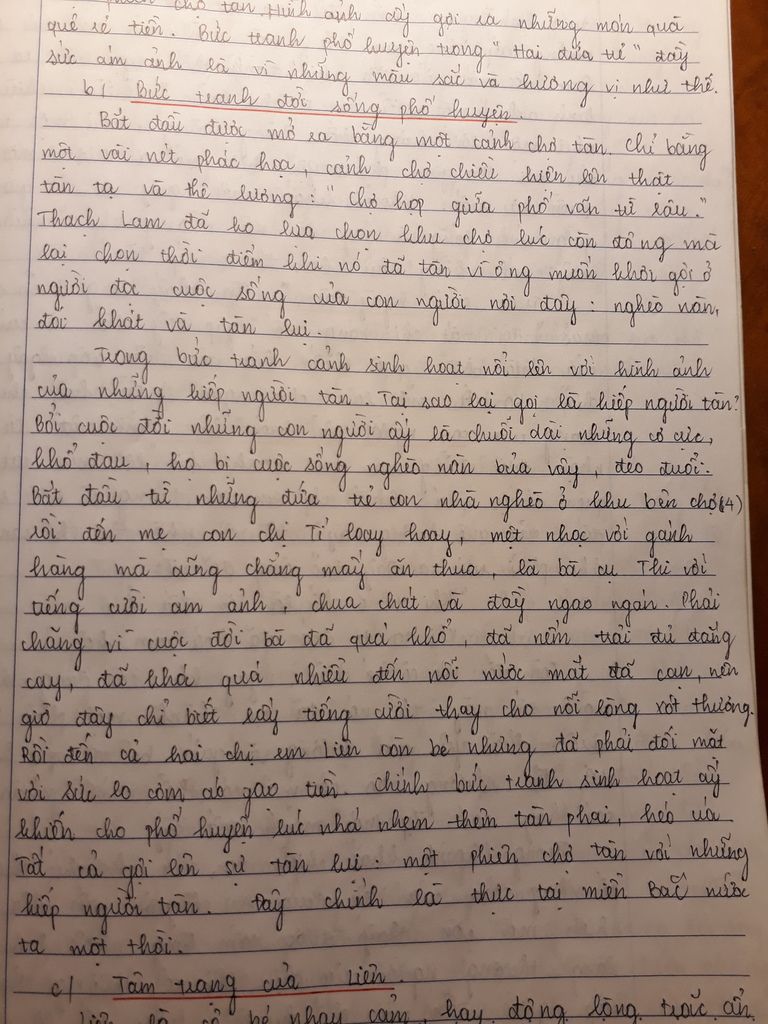 chợ tàn. Hình ảnh ấy gợi ra những món quà
quê rẻ tiền. Bức tranh phố huyện trong "Hai đứa trẻ" đầy
sức ám ảnh là vì những màu sắc và hương vị như thế.
b/ Bức tranh đời sống phố huyện.
Bắt đầu được mở ra bằng một cảnh chợ tàn. Chỉ bằng
một vài nét phác họa, cảnh chợ chiều hiện lên thật
tàn tạ và thê lương: "Chợ họp giữa phố vãn từ lâu."
Thạch Lam đã ko lựa chọn khu chợ lúc còn đông mà
lại chọn thời điểm khi nó đã tàn vì ông muốn khơi gợi ở
người đọc cuộc sống của con người nơi đây: nghèo nàn,
đói khát và tàn lụi.
Trong bức tranh cảnh sinh hoạt nổi lên với hình ảnh
của những kiếp người tàn. Tại sao lại gọi là kiếp người tàn?
Bởi cuộc đời những con người ấy là chuỗi dài những cơ cực,
khổ đau, họ bị cuộc sống nghèo nàn bủa vây, đeo đuổi.
Bắt đầu từ những đứa trẻ con nhà nghèo ở khu bên chợ(4)
rồi đến mẹ con chị Tí loay hoay, mệt nhọc với gánh
hàng mà cũng chẳng mấy ăn thua, là bà cụ Thi với
tiếng cười ám ảnh, chua chát và đầy ngao ngán. Phải
chăng vì cuộc đời bà đã quá khổ, đã nếm trải đủ đắng
cay, đã khổ quá nhiều đến nỗi nước mắt đã cạn, nên
giờ đây chỉ biết lấy tiếng cười thay cho nỗi lòng xót thương.
Rồi đến cả hai chị em Liên còn bé nhưng đã phải đối mặt
với sức lo cơm áo gạo tiền. Chính bức tranh sinh hoạt ấy
khiến cho phố huyện lúc nhá nhem thêm tàn phai, héo úa
Tất cả gợi lên sự tàn lụi: một phiên chợ tàn với những
kiếp người tàn. Đây chính là thực tại miền Bắc nước
ta một thời.
c/ Tâm trạng của Liên.
Liên là cô bé nhạy cảm, hay động lòng trắc ẩn.